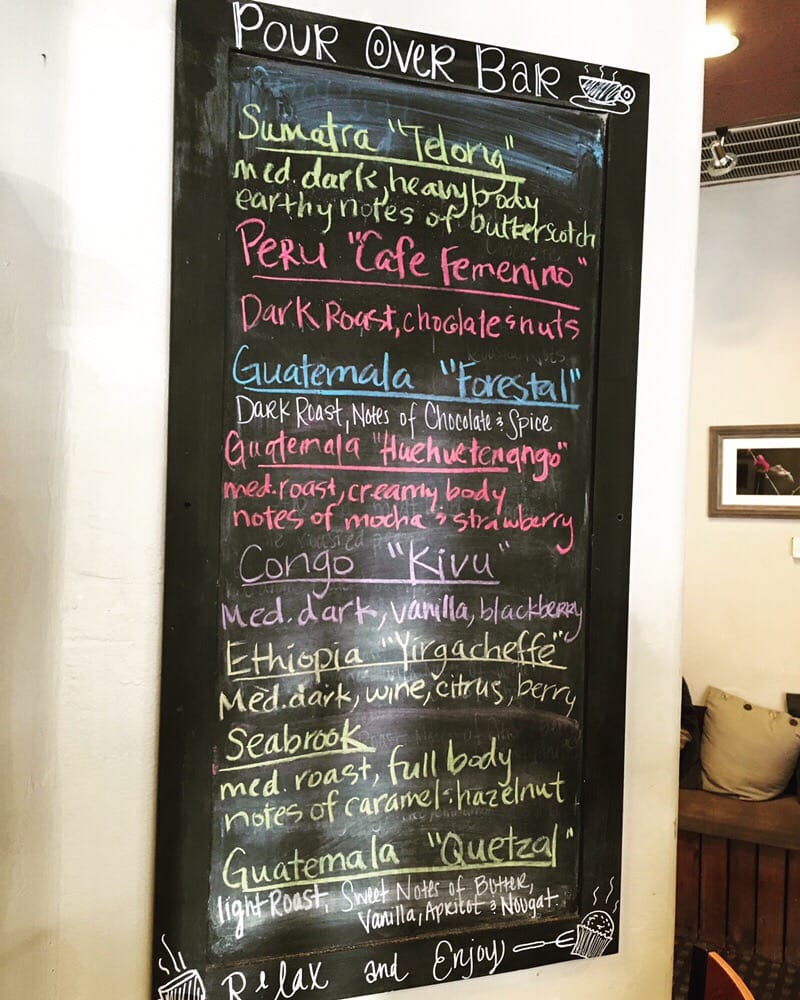 POUR OVER BAR
Sumatra "Telong"
med. dark, heavy body
earthy notes of butterscotch
PERU "Cafe Femenino"
Dark Roast, chocolate & nuts
Guatemala "Forestal"
DARK ROAST, NOTES OF CHOCOLATE & SPICE
Guatemala "Huehuetenango"
med. roast, creamy body
notes of mocha & strawberry
Congo "Kivu"
Med. dark, vanilla, blackberry
Ethiopia "Yirgacheffe"
Med. dark, wine, citrus, berry
Seabrook
med. roast, full body
notes of caramel & hazelnut
Guatemala "Quetzal"
light Roast, Sweet Notes of Butter,
Vanilla, Apricot & Nougat.
Relax and Enjoy